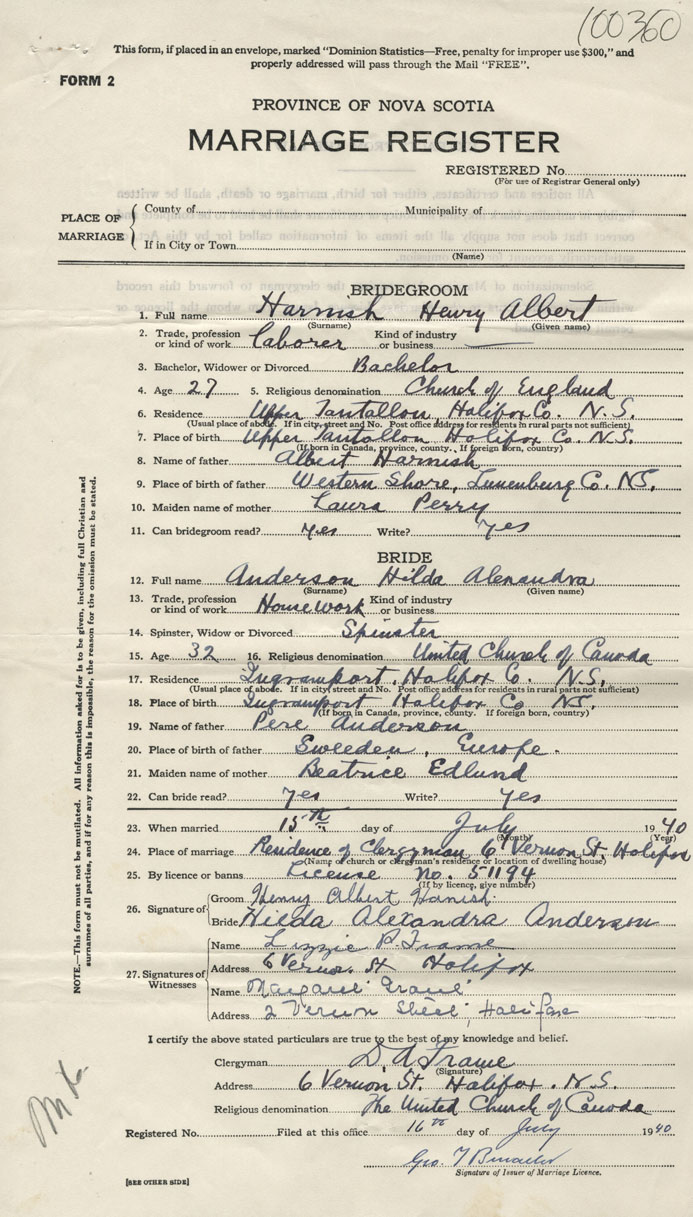 100360
This form, if placed in an envelope, marked "Dominion Statistics—Free, penalty for improper use $300," and
properly addressed will pass through the Mail "FREE".
FORM 2
PROVINCE OF NOVA SCOTIA
MARRIAGE REGISTER
REGISTERED No.
(For use of Registrar General only)
PLACE OF MARRIAGE
County of Municipality of
If in City or Town
(Name)
BRIDEGROOM
1. Full name Harnish Henry Albert
(Surname) (Given name)
2. Trade, profession or kind of work laborer Kind of industry or business
3. Bachelor, Widower or Divorced Bachelor
4. Age 27 5. Religious denomination Church of England
6. Residence Upper Tantallon, Halifax Co. N.S.
(Usual place of abode. If in city, street and No. Post office address for residents in rural parts not sufficient)
7. Place of birth Upper Tantallon Halifax Co. N.S.
(If born in Canada, province, county. If foreign born, country)
8. Name of father Albert Harnish
9. Place of birth of father Western Shore, Lunenburg Co. NS.
10. Maiden name of mother Laura Perry
11. Can bridegroom read? yes Write? yes
BRIDE
12. Full name Anderson Hilda Alexandra
(Surname) (Given name)
13. Trade, profession or kind of work Housework Kind of industry or business
14. Spinster, Widow or Divorced Spinster
15. Age 32 16. Religious denomination United Church of Canada
17. Residence Ingramport, Halifax Co. N.S.
(Usual place of abode. If in city street and No. Post office address for residents in rural parts not sufficient)
18. Place of birth Ingramport Halifax Co NS.
(If born in Canada, province, county. If foreign born, country)
19. Name of father Pere Anderson
20. Place of birth of father Sweeden, Europe.
21. Maiden name of mother Beatrice Edlund
22. Can bride read? yes Write? yes
23. When married 15th day of July 1940
(Month) (Year)
24. Place of marriage Residence of Clergyman 6 Vernon St. Halifax
(Name of church or clergyman's residence or location of dwelling house)
25. By licence or banns License no. 51194
(If by licence, give number)
26. Signature of
Groom Henry Albert Harnish.
Bride Hilda Alexandra Anderson
27. Signatures of Witnesses
Name Lizzie P. Frame
Address 6 Vernon St Halifax
Name Margaret
Address 2 Vernon Street, Halifax
I certify the above stated particulars are true to the best of my knowledge and belief.
Clergyman D. A. Frame
(Signature)
Address 6 Vernon St. Halifax. N.S.
Religious denomination The United Church of Canada
Registered No. Filed at this office 16th day of July 1940
Geo. T
Signature of Issuer of Marriage Licence.
[SEE OTHER SIDE]
NOTE.—This form must not be mutilated. All information asked for is to be given, including full Christian and
surnames of all parties, and if for any reason this is impossible, the reason for the omission must be stated.